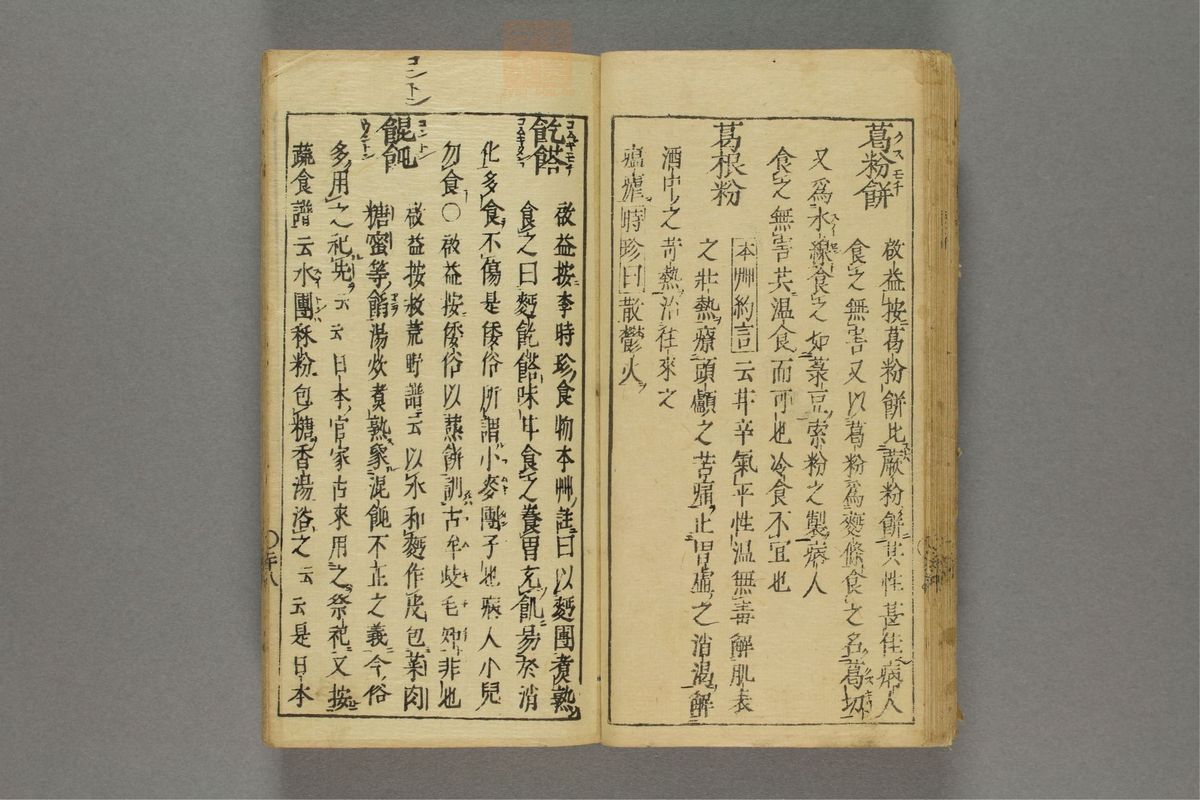 葛粉餅
啟益按葛粉餅比蕨粉餅其性甚佳病人
食之無害又以葛粉為麪條食之名葛切
又為水線食之如菉豆索粉之製病人
食之無害共温食而可也冷食不宜也
葛根粉
本艸約言云甘辛氣平性温無毒解肌表
之壯熱療頭顱之苦痛止胃虛之消渴解
酒中之苛熱治往來之
瘟瘧時珍曰散鬱火
飥𩝣
啟益按李時珍食物本艸註曰以麪團煮熟
食之曰麪飥𩝣味甘食之養胃充飢易於消
化多食不傷是倭俗所謂小麥團子也病人小兒
勿食〇啟益按倭俗以蒸餅訓古牟岐毛知非也
餛飩
啟益按救荒野譜云以水和麪作皮包菜肉
糖蜜等餡湯炊煮熟象混飩不正之義今俗
多用之祀先云云日本官家古來用之祭祀又按
蔬食譜云水團秫粉包糖香湯浴之云云是日本
コントン
クスモチ
コントン
ウトン
〇二十八